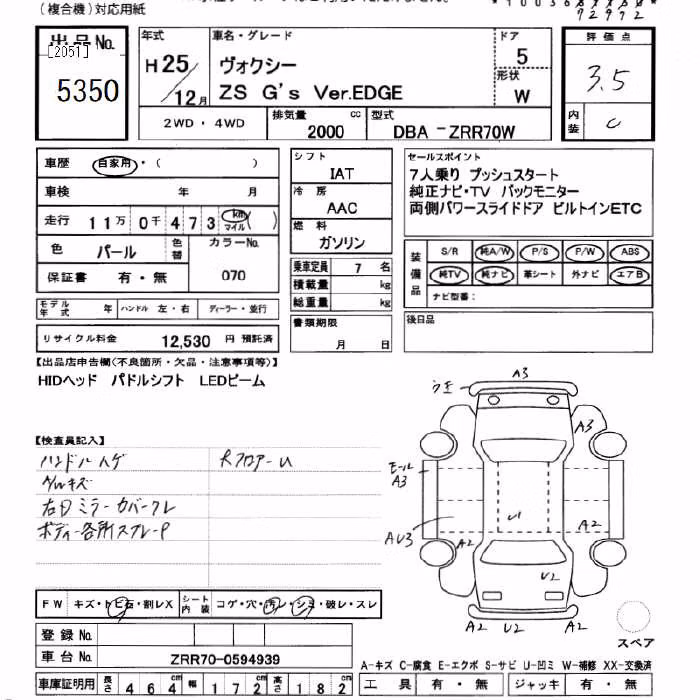 (複合機)対応用紙
出品No.
[2051]
5350
年式
H25/12月
車名・グレード
ヴォクシー
ZS G's Ver.EDGE
ドア
5
形状
W
評価点
3.5
内装
C
2WD・4WD
排気量
2000 cc
型式
DBA -ZRR70W
車歴 自家用・( )
車検 年 月
走行 11万0千473 km マイル ( )
色 パール 色替
カラーNo.
070
保証書 有・無
モデル年式 年 ハンドル 左・右 ディーラー・並行
リサイクル料金 12,530 円 預託済
シフト
IAT
冷房
AAC
燃料
ガソリン
乗車定員 7 名
積載量 kg
総重量 kg
書類期限
月 日
セールスポイント
7人乗り プッシュスタート
純正ナビ・TV バックモニター
両側パワースライドドア ビルトインETC
装備品
S/R 純A/W P/S P/W ABS
純TV 純ナビ 革シート 外ナビ エアB
ナビ型番:
後日品
【出品店申告欄(不良箇所・欠品・注意事項等)】
HIDヘッド パドルシフト LEDビーム
【検査員記入】
ハンドルハゲ
内ルキズ
右Dミラーカバークレ
ボディー各所スプレーP
R フロアーU
FW キズ・トビ石・割レX
シート内装 コゲ・穴・汚レ・シミ・破レ・スレ
登録No.
車台No. ZRR70-0594939
車庫証明用 長さ 464 cm 幅 172 cm 高さ 182 cm
A3
うキ
A3
モール
A3
AU3
A2
U1
A2
U2
A2 U2 A2
スペア
A-キズ C-腐食 E-エクボ S-サビ U-凹ミ W-補修 XX-交換済
工具 有・無 ジャッキ 有・無